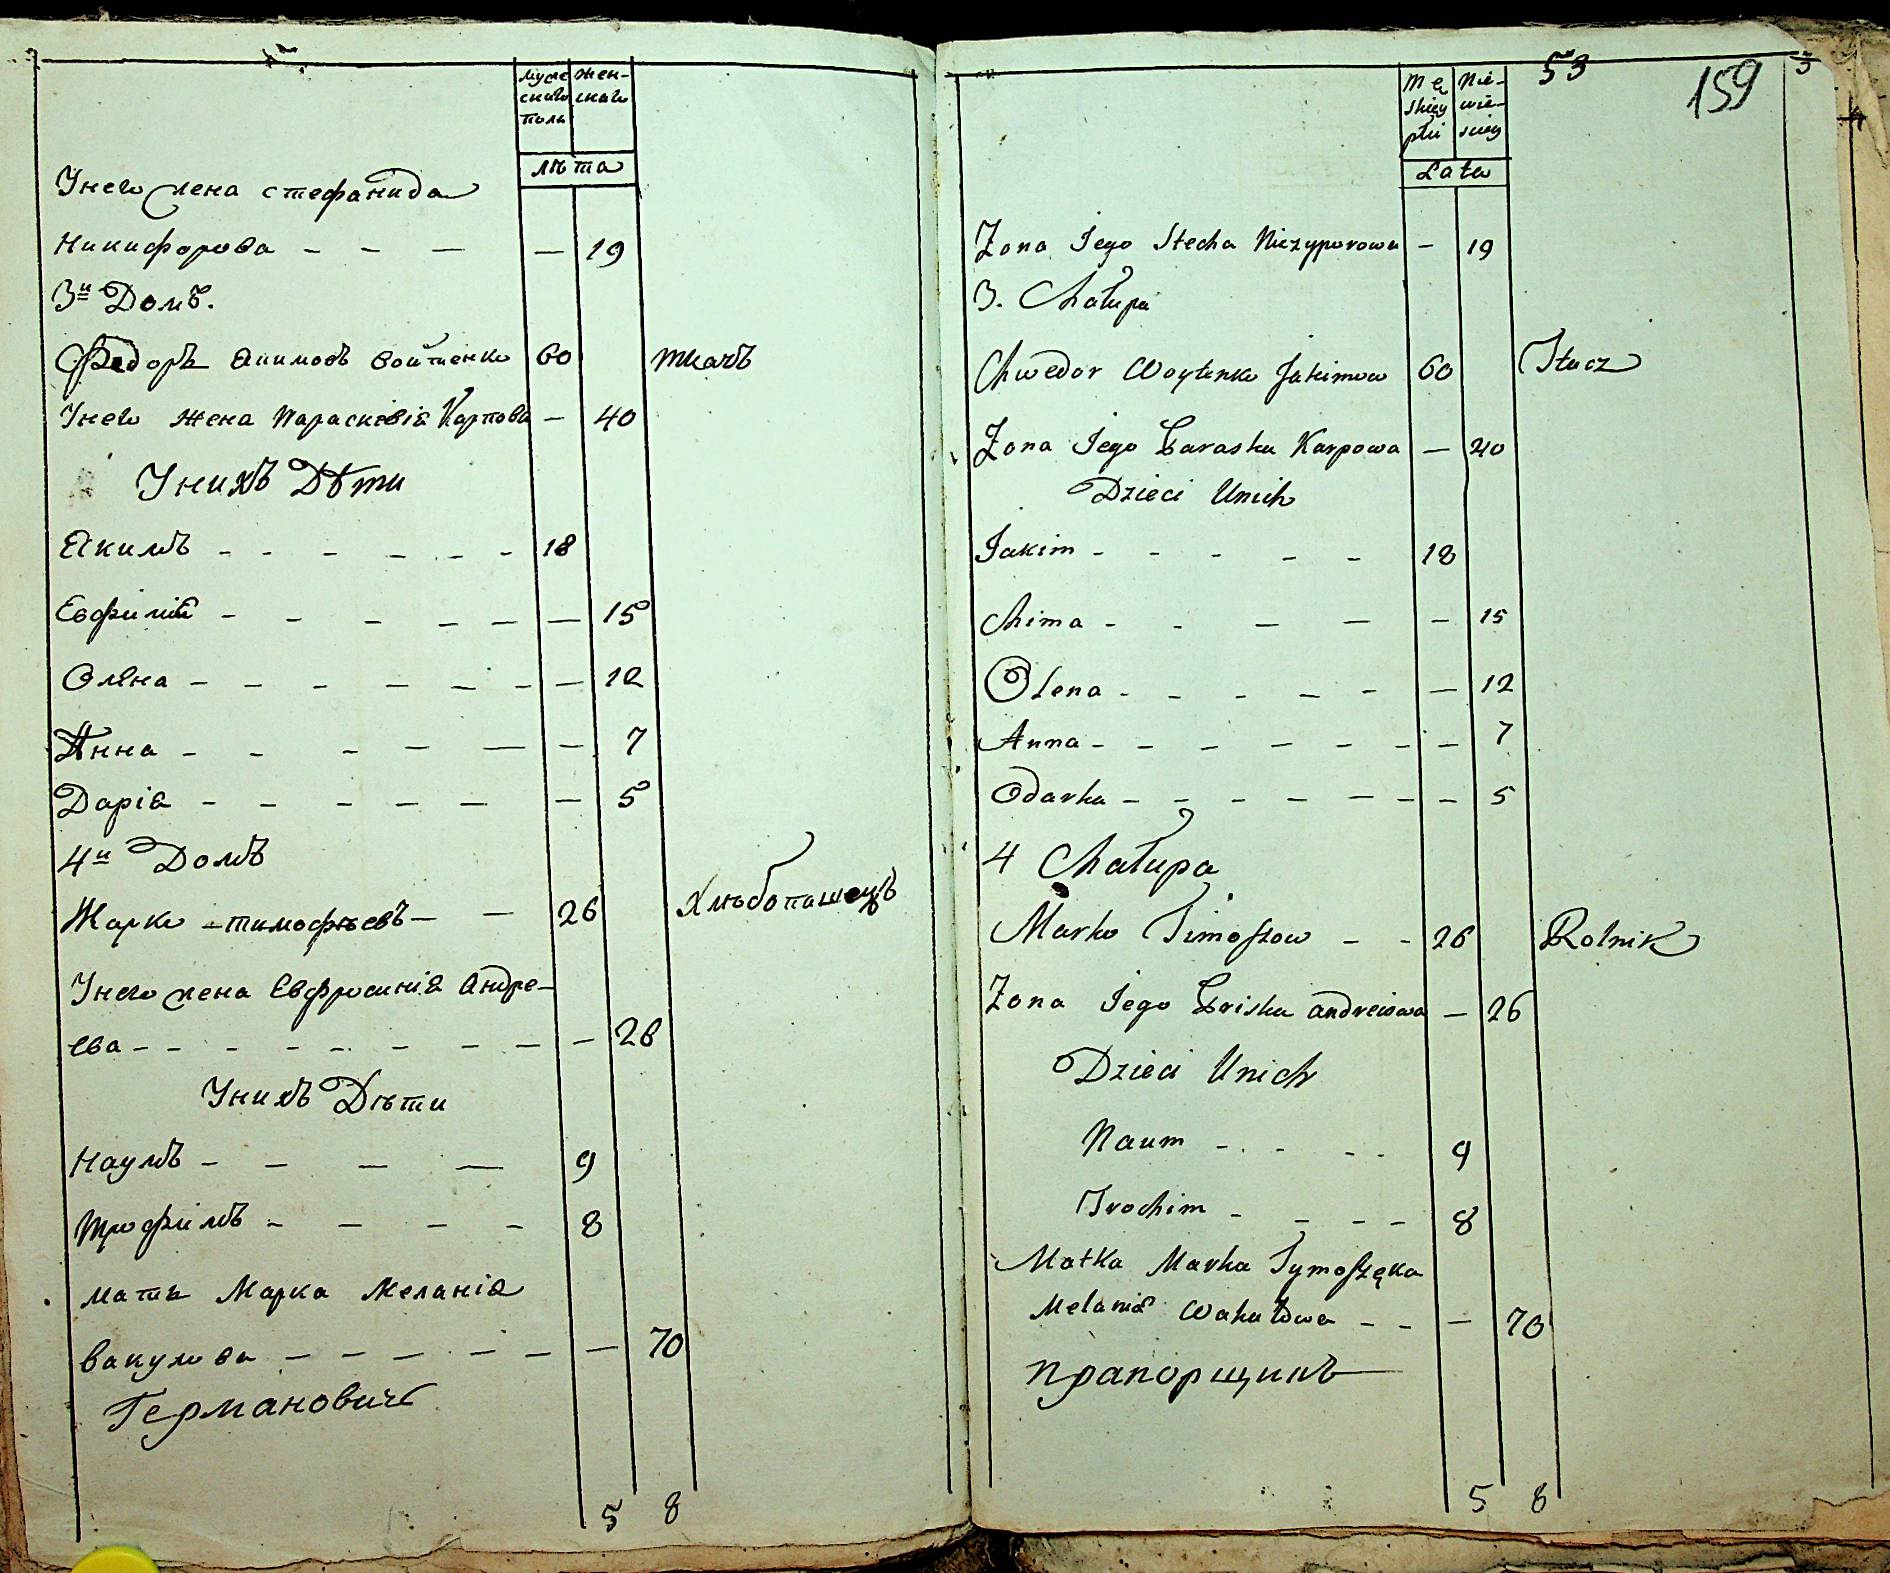 муже женскаго
скаго
пола
лѣта
Унего жена стефанида
Никифорова — — — — 19
3й Домъ.
Федоръ Якимовъ войтенко 60 ткачъ
Унего жена Параскевiя Карпова — 40
Унихъ Дѣти
Якимъ — — — — — — 18
Евфимiя — — — — — — 15
Олена — — — — — — — 12
Анна — — — — — — 7
Дарiя — — — — — — 5
4й Домъ
Марко тимофѣевъ — — 26 Хлѣбопашецъ
Унего жена Евфросинiя Андре-
ева — — — — — — — — — 26
Унихъ Дѣти
Наумъ — — — — 9
Трофимъ — — — — 8
мать Марка Меланiя
вакулова — — — — — — — 70
Германовичъ
5 8
53 159
Mę Nie-
skiey wie-
płci sciey
Lata
Zona Jego Stecha Niczyporowa — 19
3. Chałupa
Chwedor Woytenko Jakimow 60 Tkacz
Zona Jego Paraska Karpowa — 40
Dzieci Unich
Jakim — — — — — 18
Chima — — — — — 15
Olena — — — — — — 12
Anna — — — — — — — 7
Odarka — — — — — — — 5
4 Chałupa
Marko Timoszow — — 26 Rolnik
Zona Jego Priska Andreiowa — 26
Dzieci Unich
Naum — — — — 9
Trochim — — — — 8
Matka Marka Tymoszęka
Melania Wakułowa — — — 70
прапорщикъ
5 8